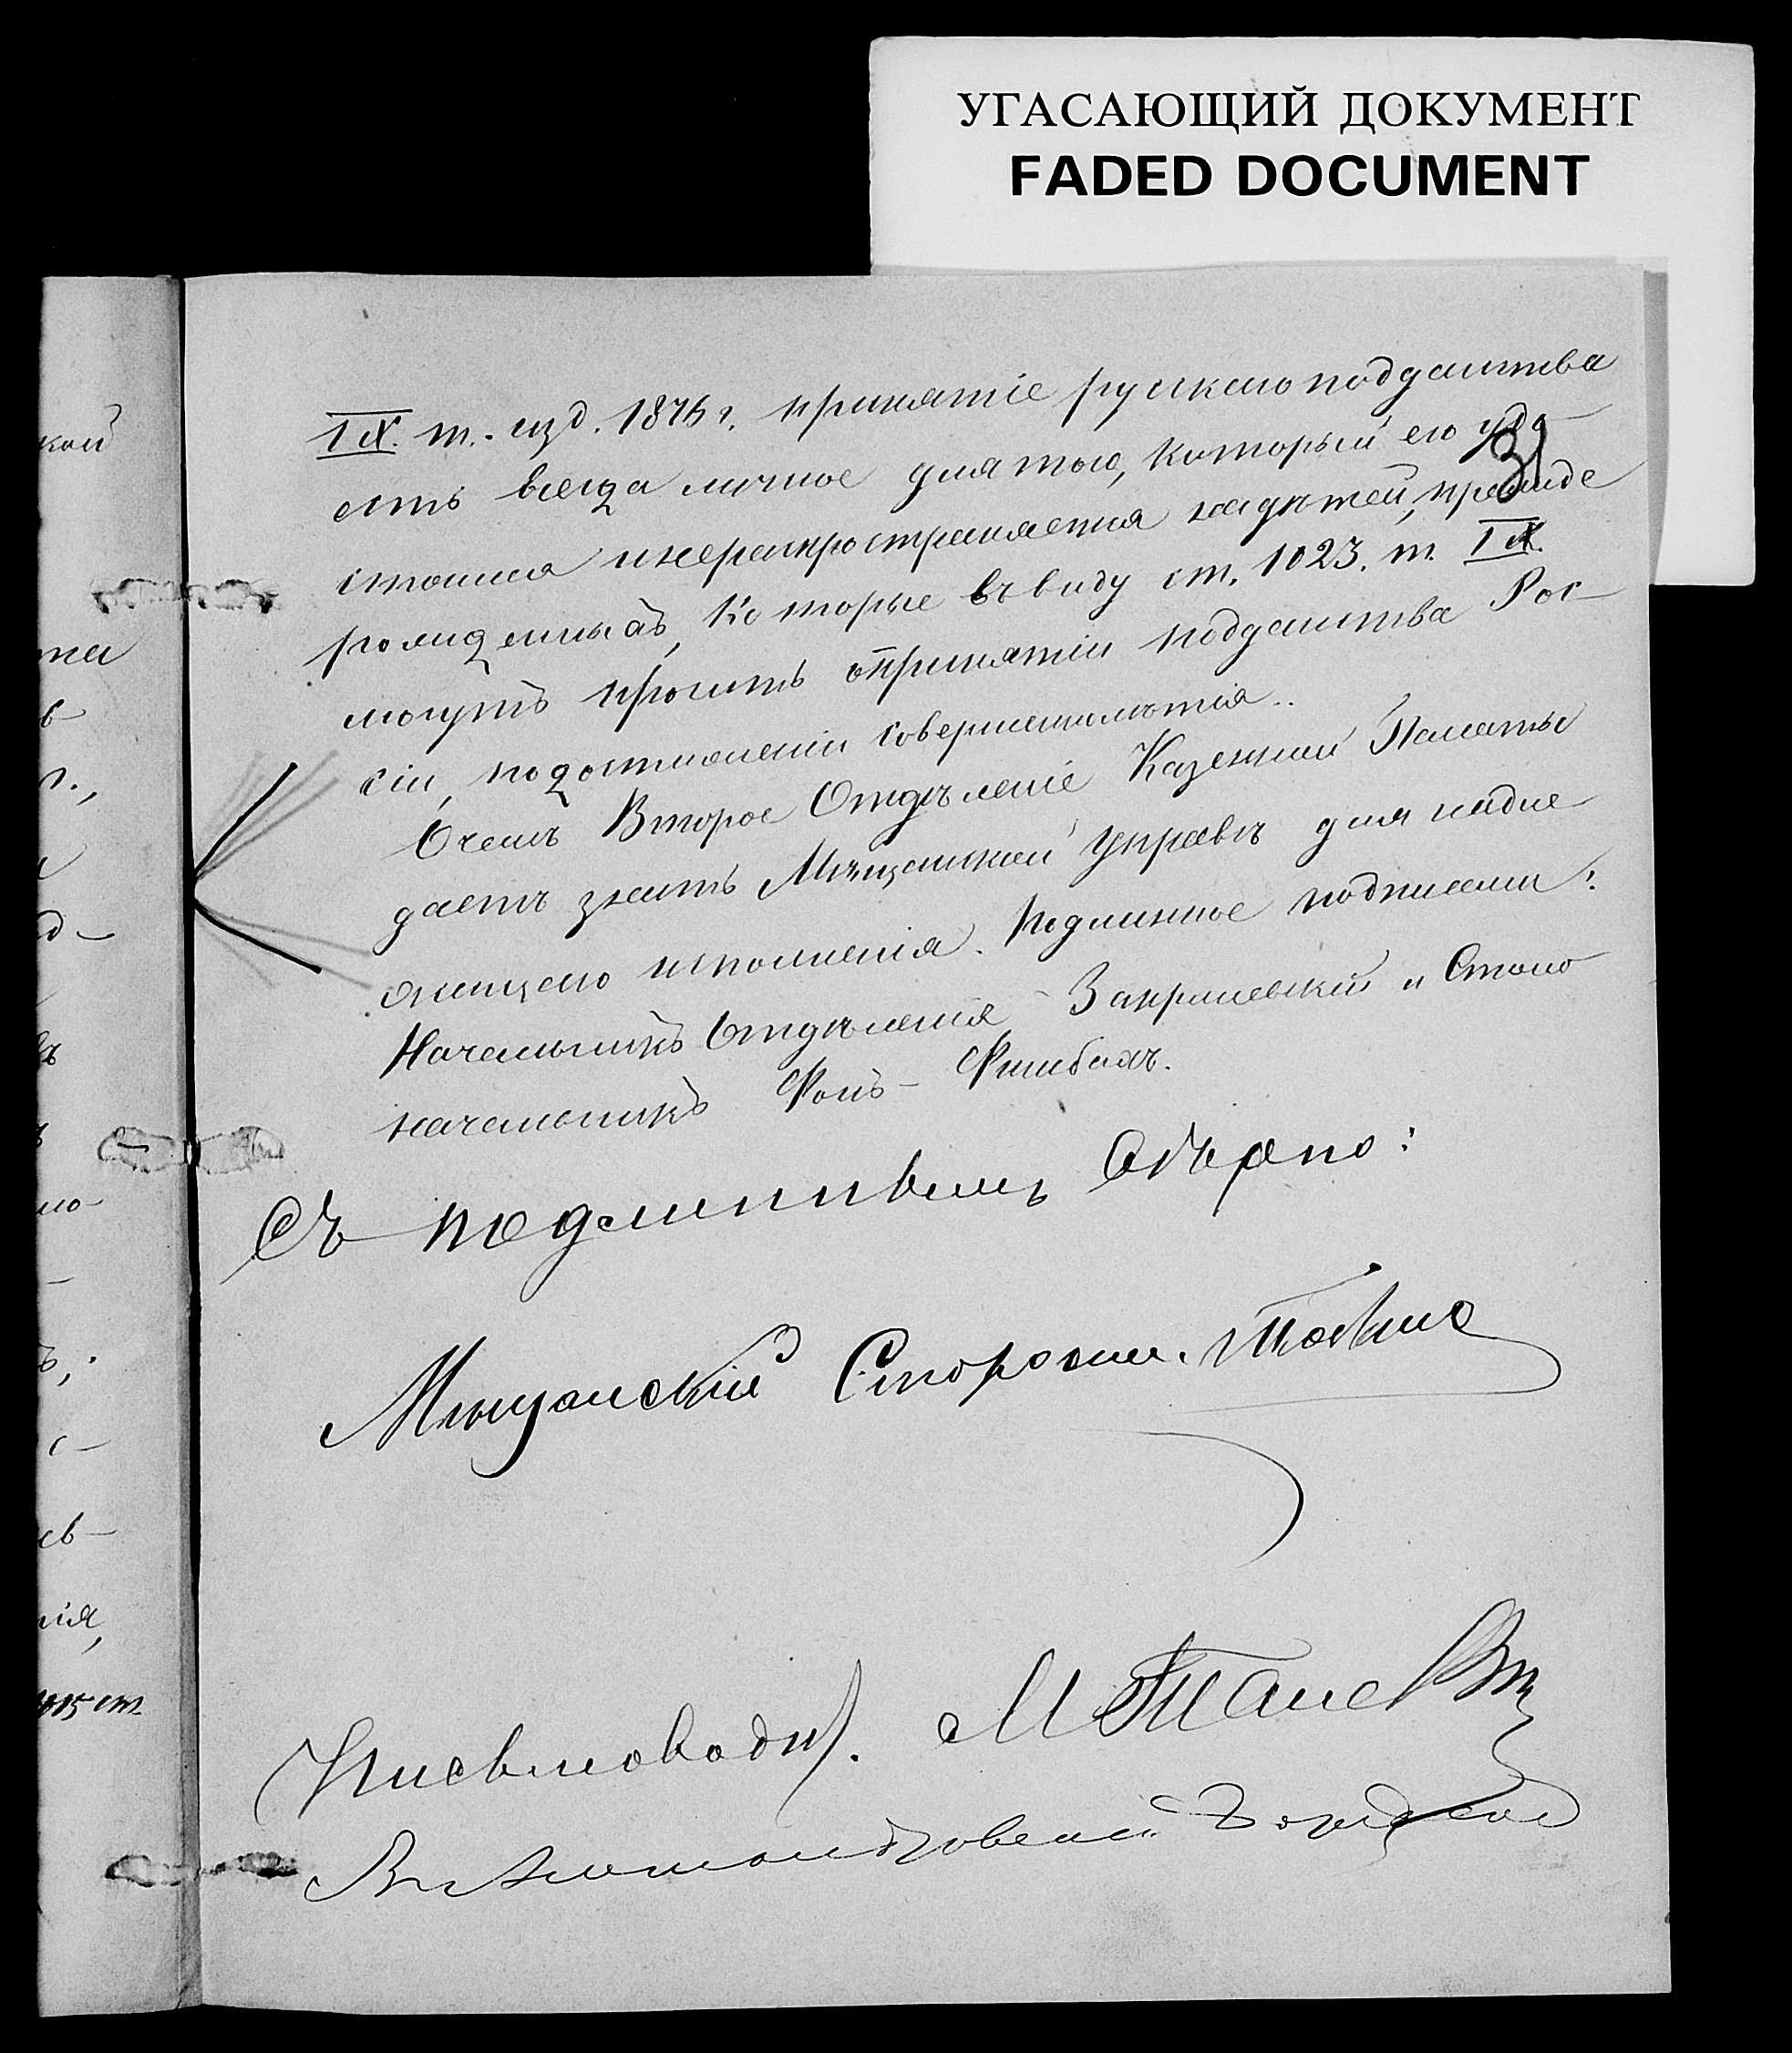 УГАСАЮЩИЙ ДОКУМЕНТ
FADED DOCUMENT
31
IX. т. изд. 1876 г. принятіе русскаго подданства
есть всегда личное для того, который его удо-
стоился и нераспространяется на дѣтей, прежде
рожденныхъ, которые въ виду ст. 1023. т. IX.
могутъ просить о принятіи подданства Рос-
сіи, по достиженіи совершеннолѣтія..
О чемъ Второе Отдѣленіе Казенной Палаты
даетъ знать Мѣщанской Управѣ для надле-
жащаго исполненія. Подлинное подписали:
Начальникъ Отдѣленія Закржевскій и Столо-
начальникъ Фонъ-Фишбахъ.
Съ подлиннымъ вѣрно:
Мѣщанскій Старост.
Письмовод.
кой
та
в
г.,
д-
но-
с-
нія,
1015 ст.